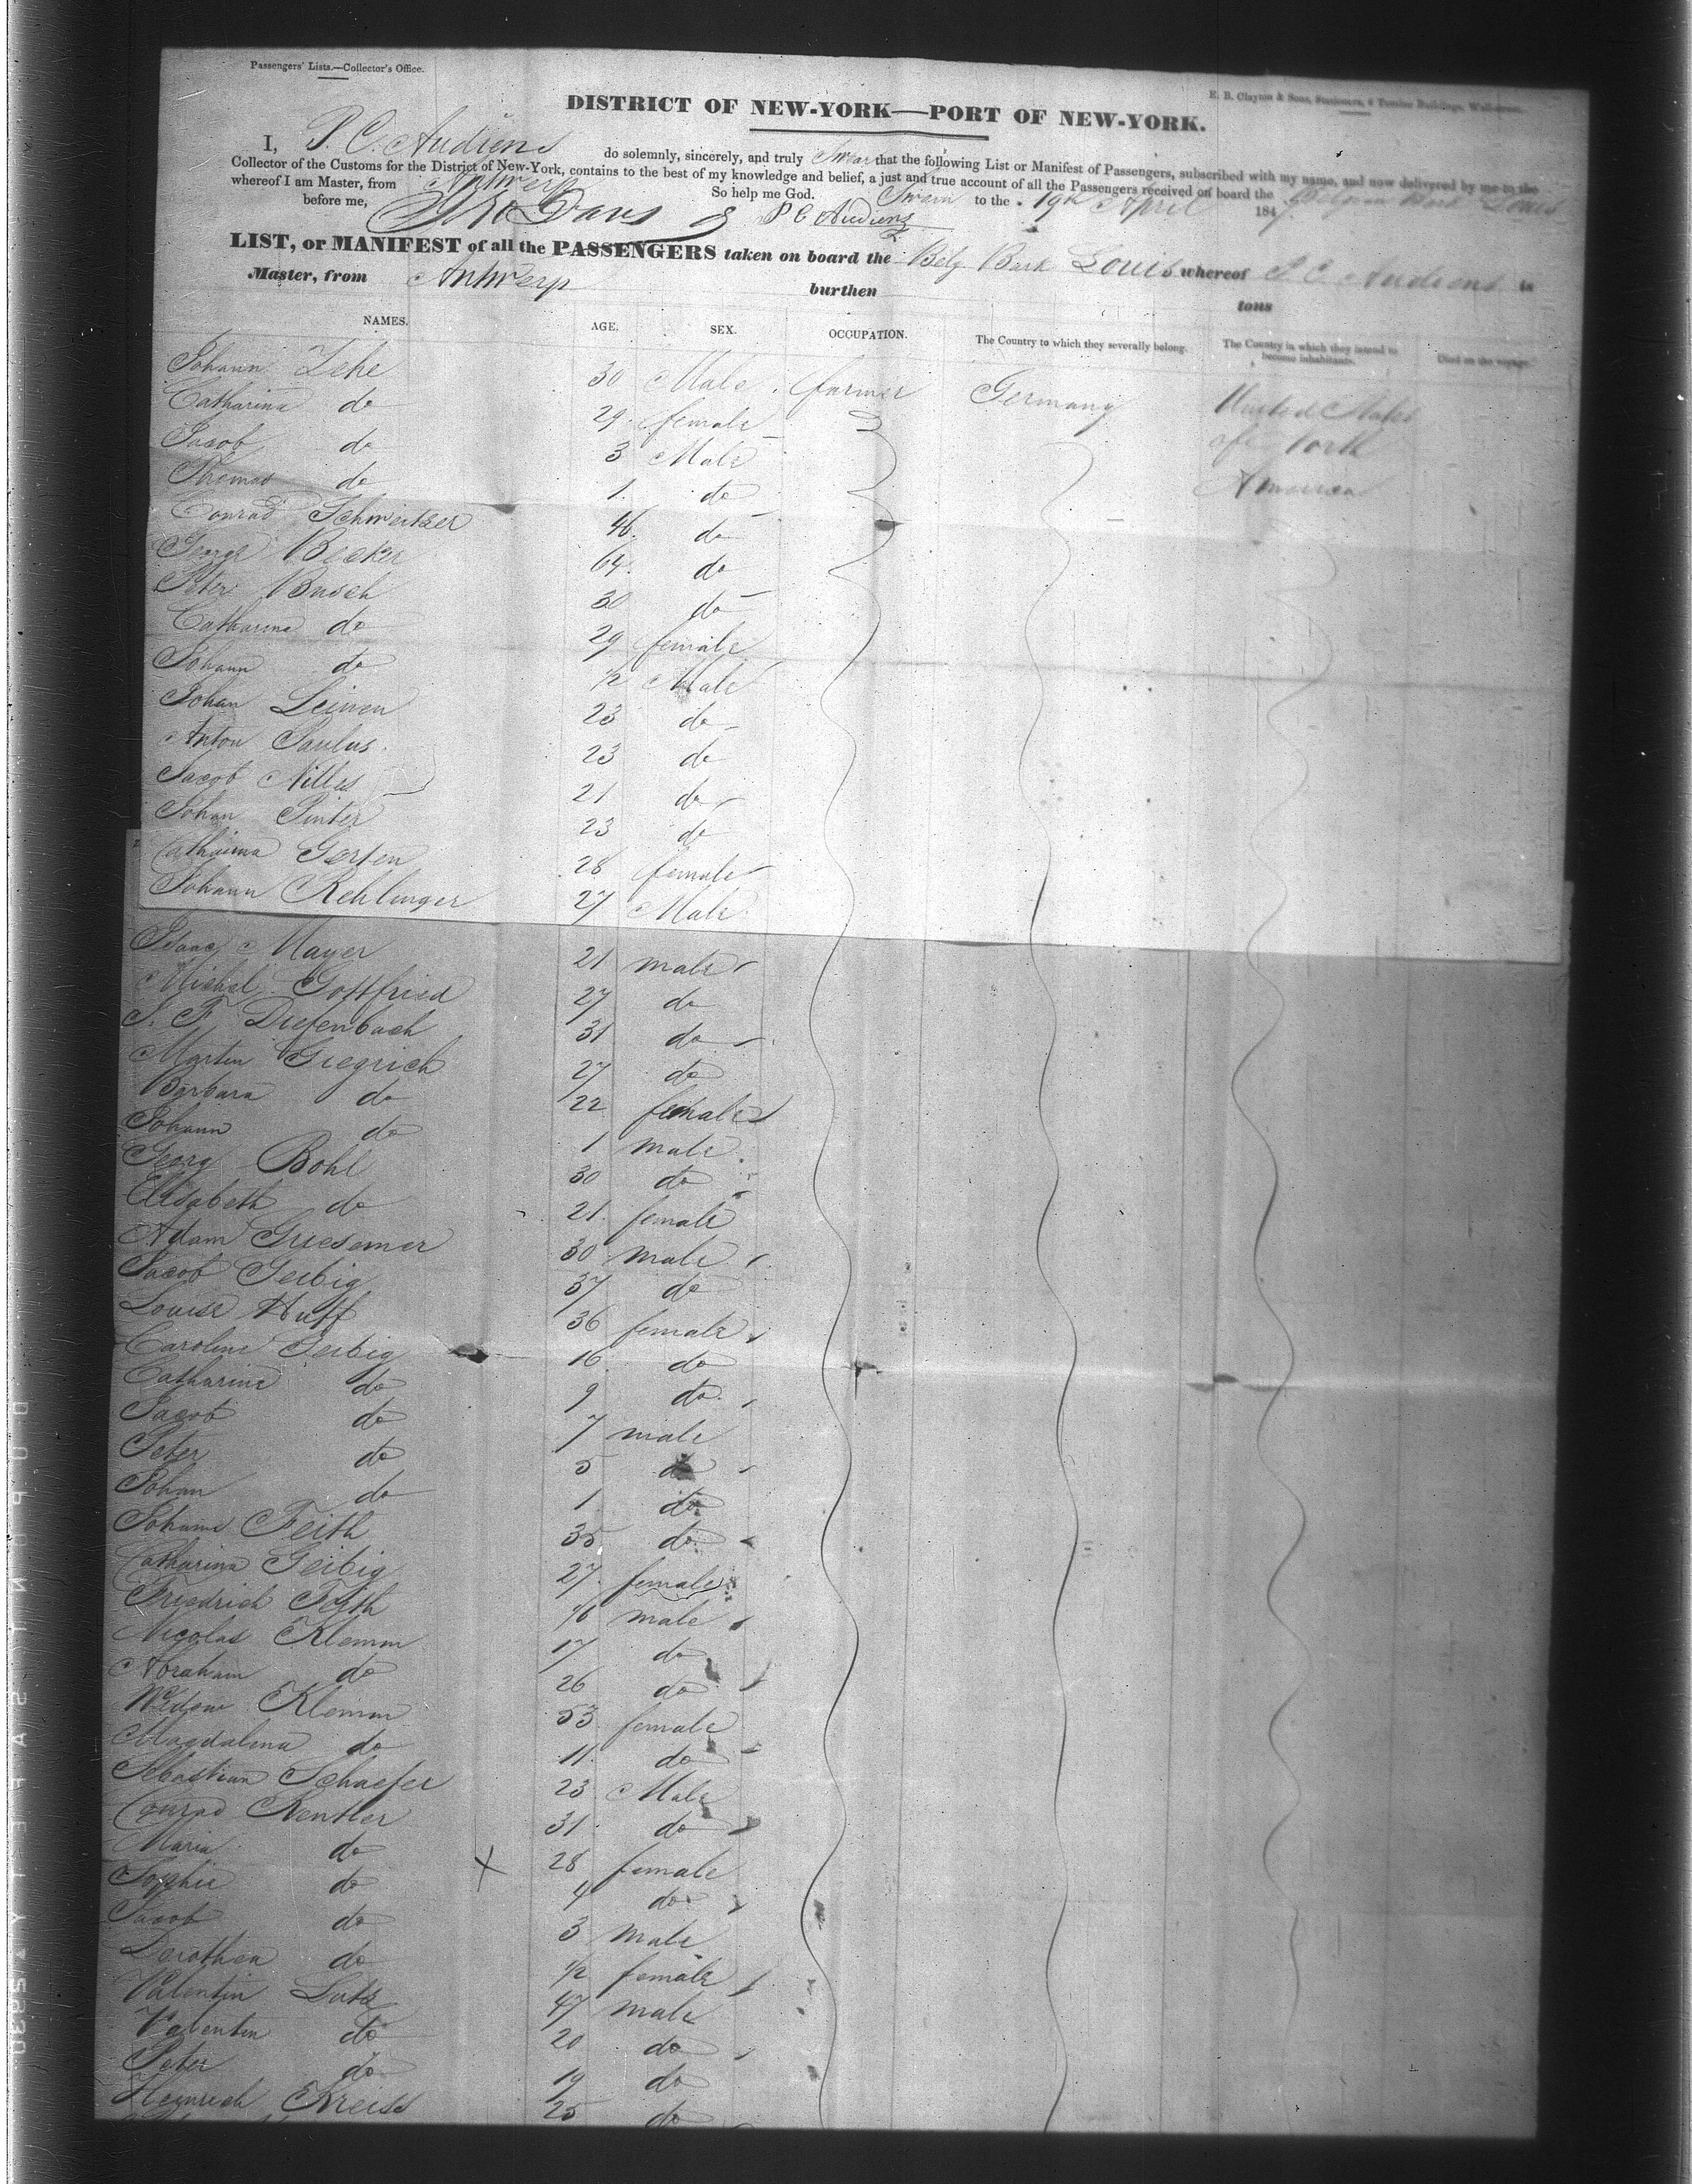 Passengers' Lists.—Collector's Office.
E. B. Clayton & Sons, Stationers,
DISTRICT OF NEW-YORK—PORT OF NEW-YORK.
I, P. C. Audiens do solemnly, sincerely, and truly Swear that the following List or Manifest of Passengers, subscribed with my name, and now delivered by me to the
Collector of the Customs for the District of New-York, contains to the best of my knowledge and belief, a just and true account of all the Passengers received on board the
whereof I am Master, from Antwerp So help me God. Sworn to the 19th April 184
before me, P C Audiens
LIST, or MANIFEST of all the PASSENGERS taken on board the Belg Bark Louis whereof P C Audiens is
Master, from Antwerp burthen tons
NAMES. AGE. SEX. OCCUPATION. The Country to which they severally belong. The Country in which they intend to become inhabitants. Died on the voyage.
Johann Zehe 30 Male farmer Germany United States
Catharina do 29 female of North
Jacob do 3 Male America
Thomas do 1 do
Conrad Schweitzer 46 do
George Becker 64 do
Peter Busch 30 do
Catharina do 29 female
Johann do 1/2 Male
Johan Leinen 23 do
Anton Paulus 23 do
Jacob Nilles 21 do
Johan Pinter 23 do
Catharina Gerten 28 female
Johann Rehlinger 27 Male
Isaac Mayer 21 male
Michel Gottfried 27 do
J. F. Diefenbach 31 do
Martin Giegrich 27 do
Barbara do 22 female
Johann do 1 male
Georg Bohl 30 do
Elisabeth do 21 female
Adam Griesemer 30 male
Jacob Geibig 37 do
Louise Huff 36 female
Caroline Geibig 16 do
Catharine do 9 do
Jacob do 7 male
Peter do 5 do
Johan do 1 do
Johann Feith 35 do
Catharina Geibig 27 female
Friedrich Feith male
Nicolas Klemm 17 do
Abraham do 26 do
Widow Klemm 53 female
Magdalena do 11 do
Sebastian Schaefer 23 Male
Conrad Kentler 31 do
Maria do X 28 female
Sophie do 4 do
Jacob do 3 male
Dorothea do 1/2 female
Valentin Lutz 47 male
Valentin do 20 do
Peter do 19 do
Heinrich Kreiss 25 do